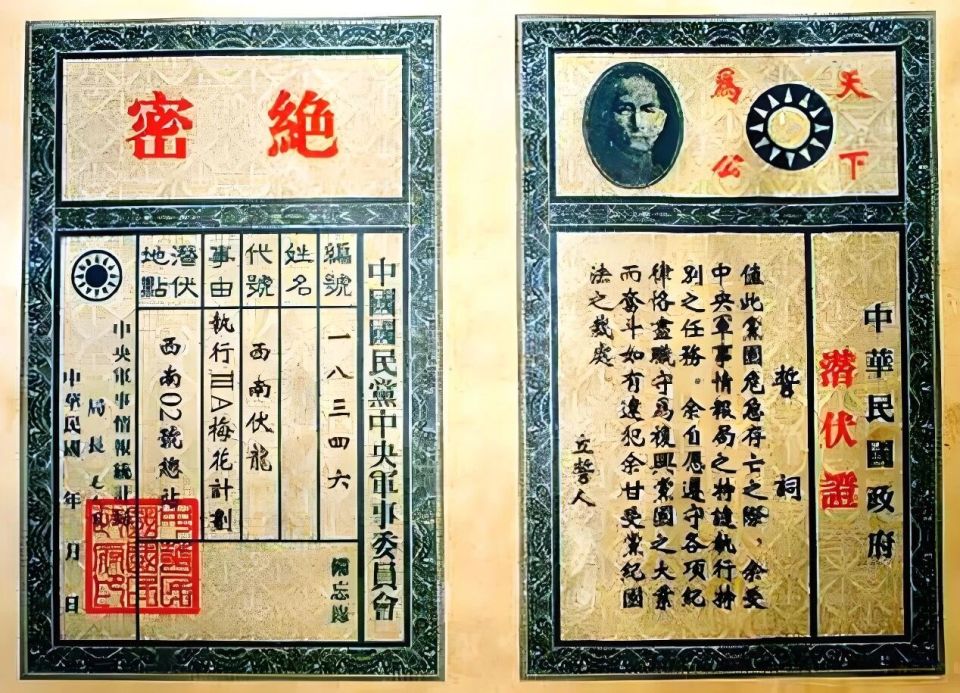 天下
為公
中華民國政府
潛伏證
誓詞
值此黨國危急存亡之際,余受
中央軍事情報局之特執行特
別之任務.余自愿遵守各項紀
律恪盡職守為複興黨國之大業
而奮斗如有違犯余甘受黨紀國
法之裁處
立誓人
絕密
中國國民黨中央軍事委員會
編號
一八三四六
姓名
代號
西南伏龍
事由
執行ⅢA梅花計劃
潛伏
地點
西南02號總站
備忘錄
中央軍事情報統計
局長
中華民國 年 月 日